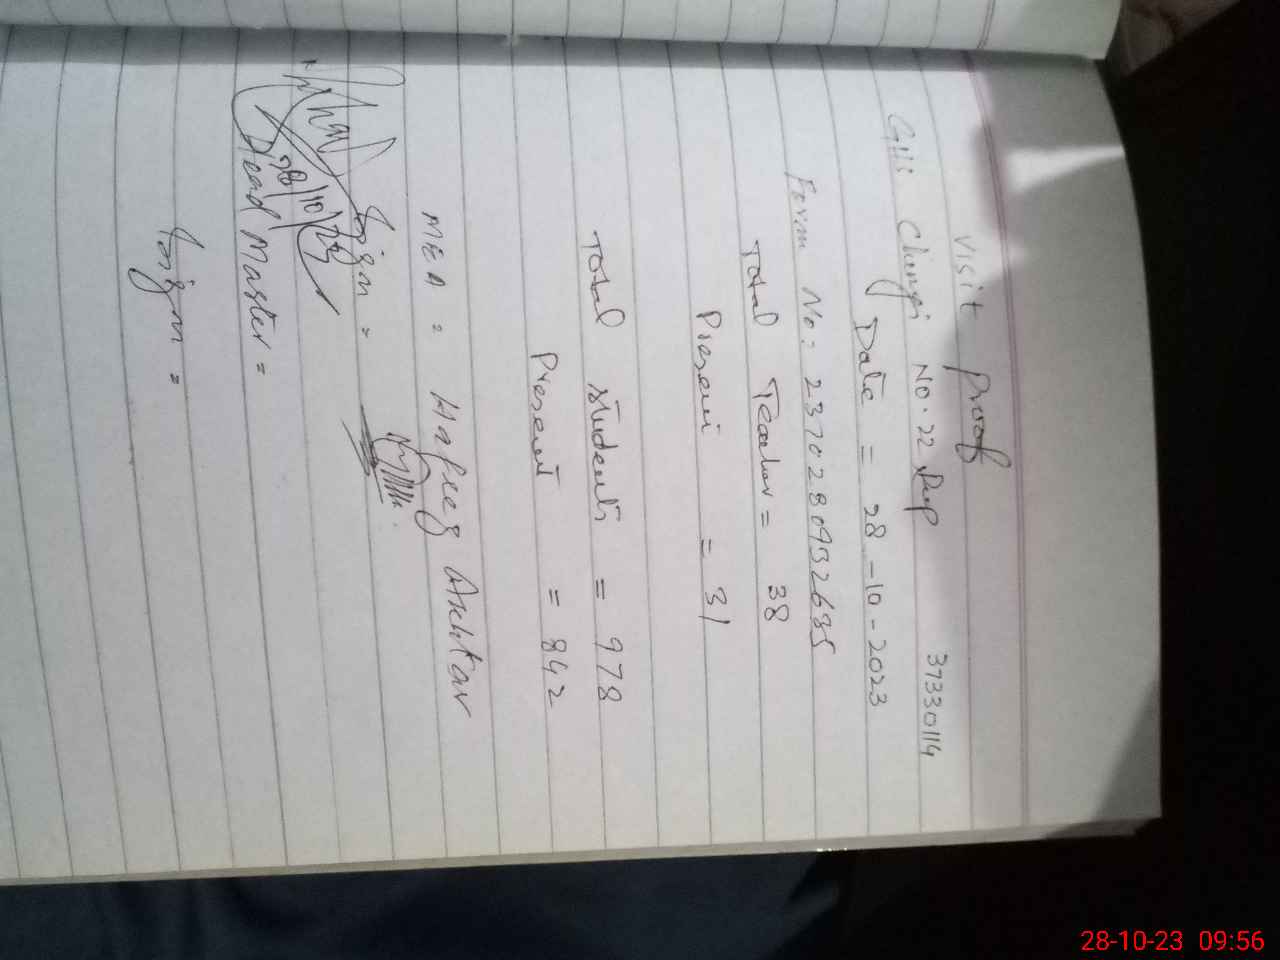 Visit Proof
GHS Chungi No. 22 Pwp 37330114
Date = 28-10-2023
Form No: 2370280932685
Total Teacher = 38
Present = 31
Total students = 978
Present = 842
MEA = Hafeez Akhtar
Sign =
28/10/23
Head Master =
Sign =
28-10-23 09:56